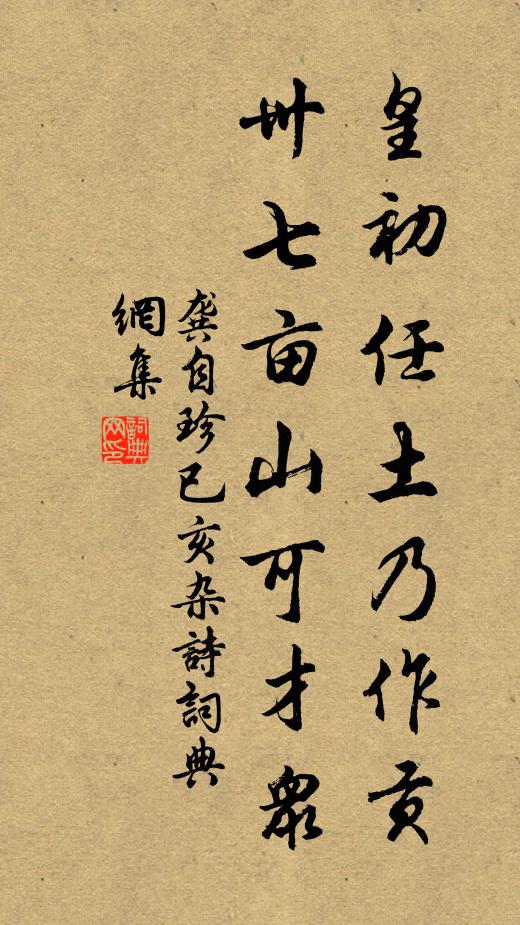 皇初任土乃作贡
卅七亩山可才眾
龚自珍已亥杂詩詞典
網集
詞典
网印